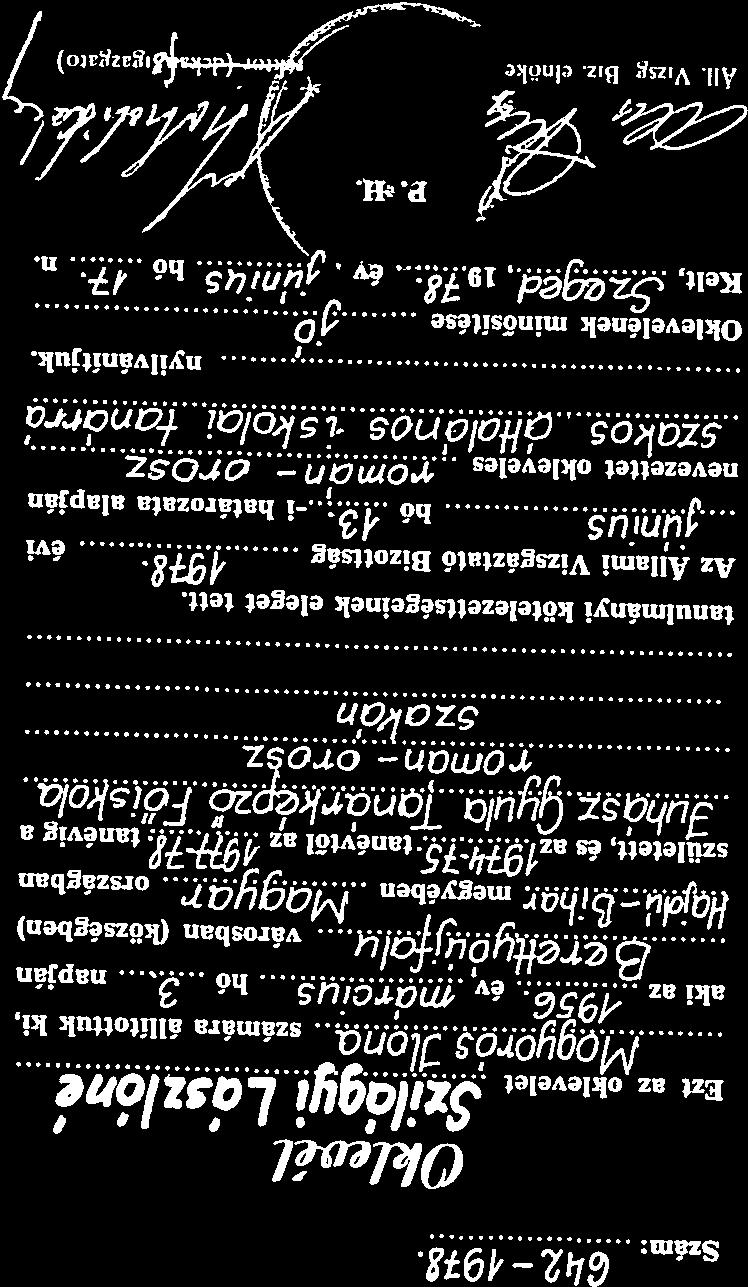 Szám: 642-1978.
Oklevél
Ezt az oklevelet Szilágyi Lászlóné
Mogyorós Ilona számára állítottuk ki,
aki az 1956. év március hó 3 napján
Berettyóújfalu városban (községben)
Hajdú-Bihar megyében Magyar országban
született, és az 1974-75 tanévtől az 1977-78 tanévig a
Juhász Gyula Tanárképző Főiskola
román - orosz
szakán
tanulmányi kötelezettségeinek eleget tett.
Az Állami Vizsgáztató Bizottság 1978. évi
június hó 13.-i határozata alapján
nevezettet okleveles román - orosz
szakos általános iskolai tanárrá
nyilvánítjuk.
Oklevelének minősítése jó
Kelt, Szeged, 1978. év június hó 17. n.
P. H.
Áll. Vizsg. Biz. elnöke
rektor (dékán) igazgató)